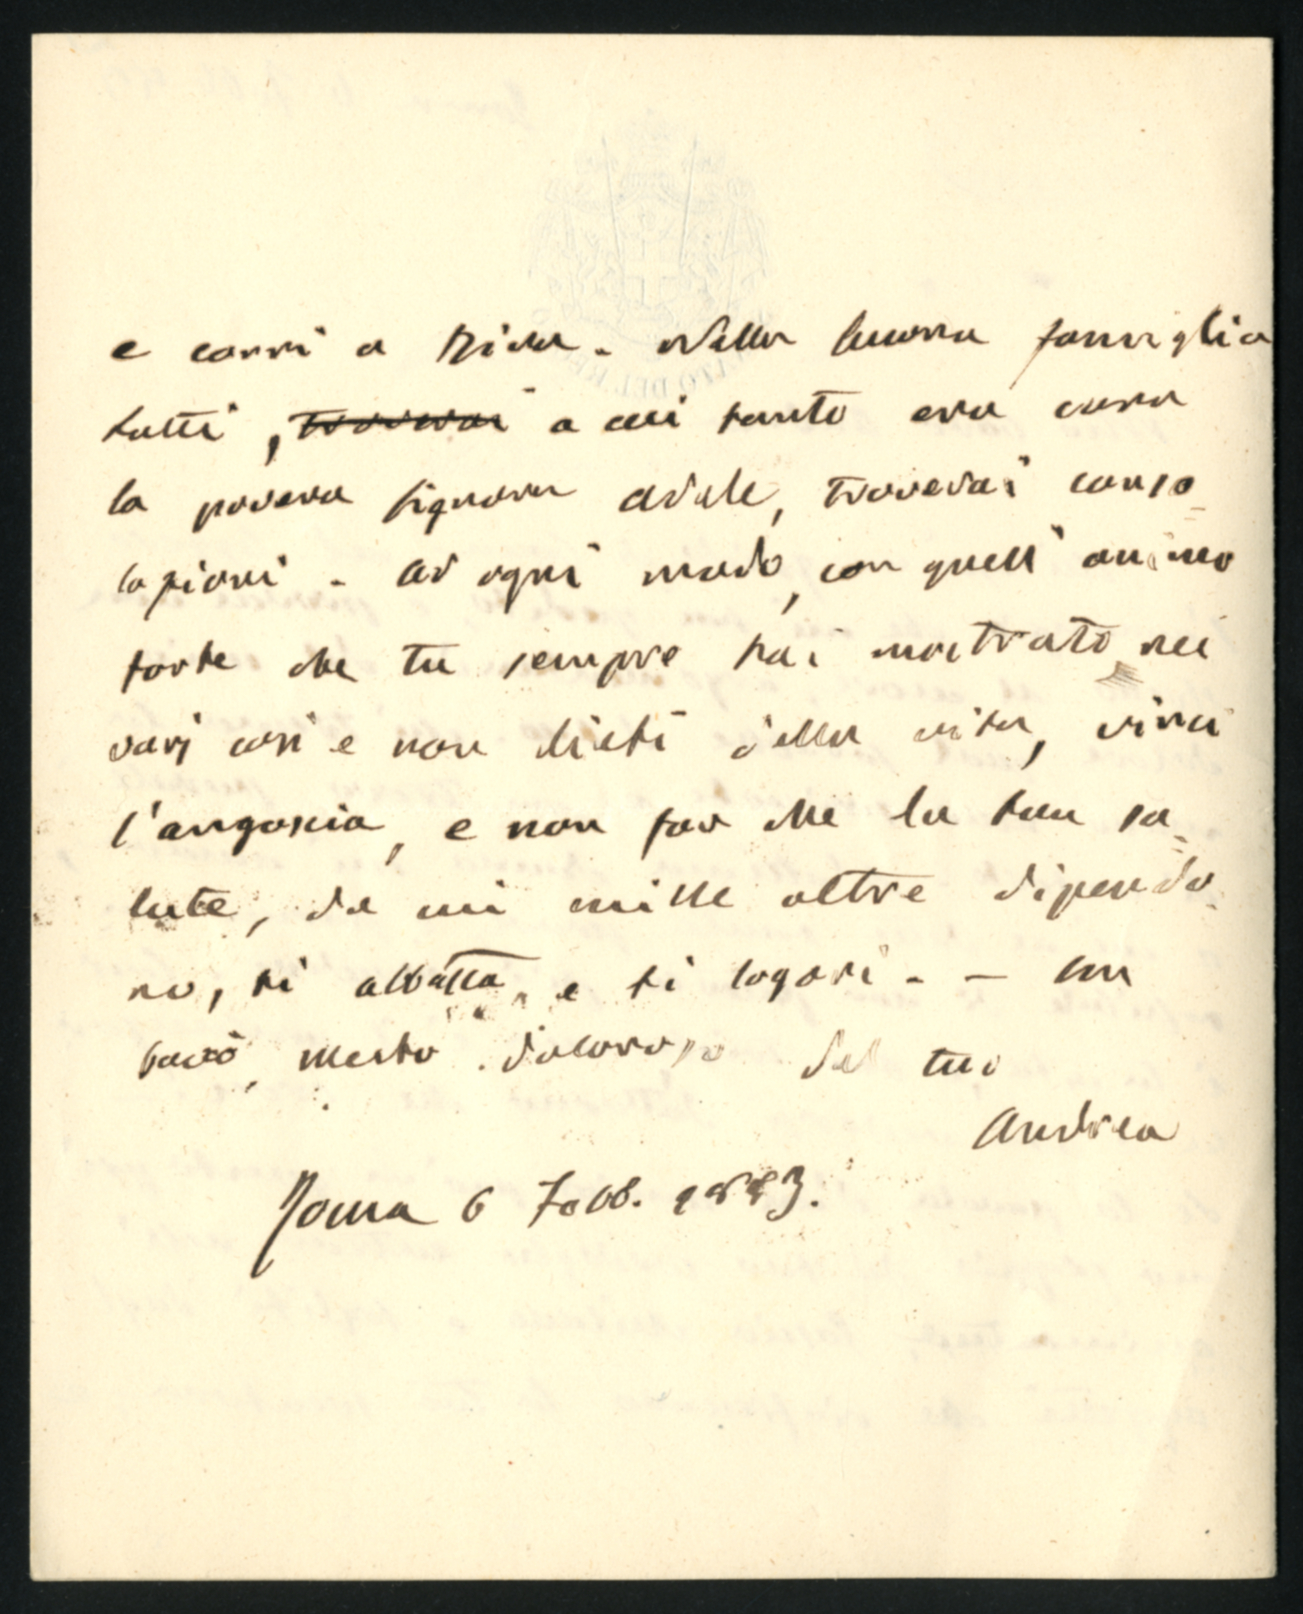 e corri a Riva. Nella buona famiglia
Lutti, a cui tanto era cara
la povera signora Adele, troverai conso-
lazioni. Ad ogni modo, con quell'animo
forte che tu sempre hai mostrato nei
varj casi e non lieti della vita, vinci
l'angoscia, e non far che la tua sa-
lute, da cui mille altre dipendo-
no, si abbatta, e si logori. — Un
bacio, mesto doloroso del tuo
Andrea
Roma 6 Febb. 1883.